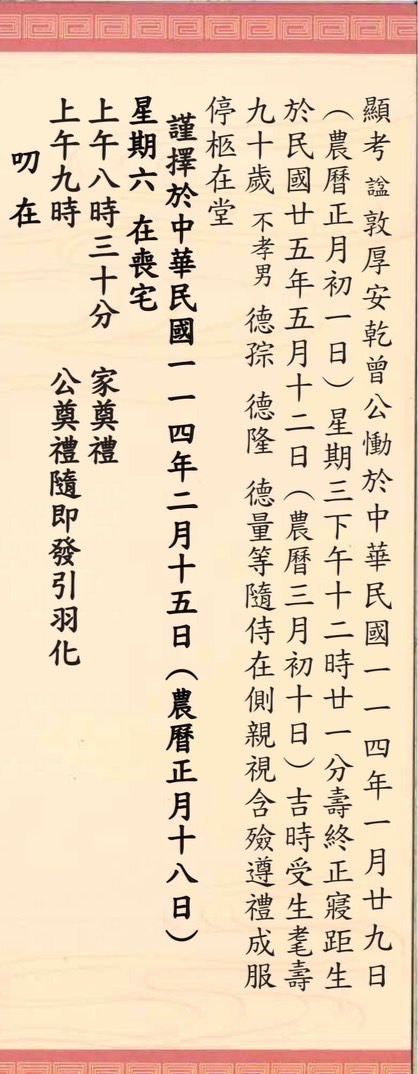 顯考 諡敦厚安乾曾公慟於中華民國一一四年一月廿九日
（農曆正月初一日）星期三下午十二時廿一分壽終正寢距生
於民國廿五年五月十二日（農曆三月初十日）吉時受生耄壽
九十歲 不孝男 德孮 德隆 德量等隨侍在側親視含殮遵禮成服
停柩在堂
謹擇於中華民國一一四年二月十五日（農曆正月十八日）
星期六 在喪宅
上午八時三十分 家奠禮
上午九時 公奠禮隨即發引羽化
叨在